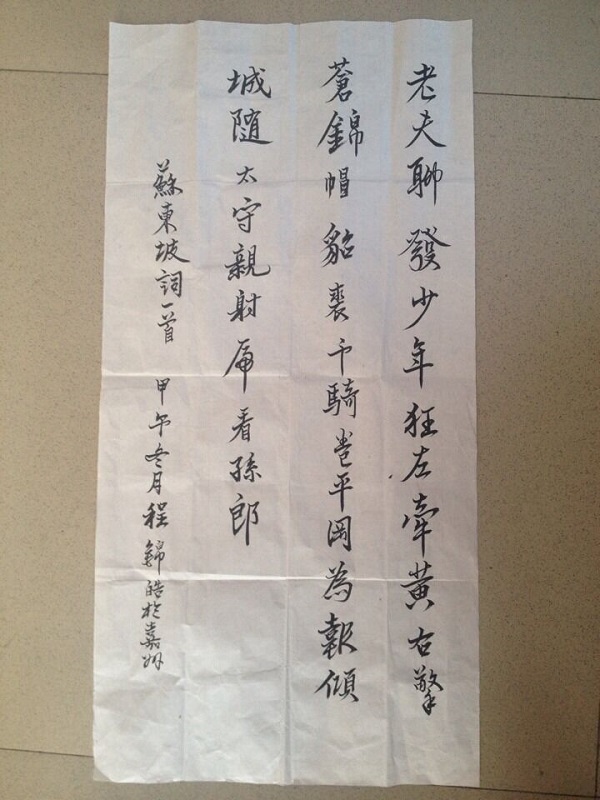 老夫聊發少年狂左牽黃右擎
蒼錦帽貂裘千騎卷平岡為報傾
城隨太守親射虎看孫郎
蘇東坡詞一首 甲午冬月程錦皓於嘉州